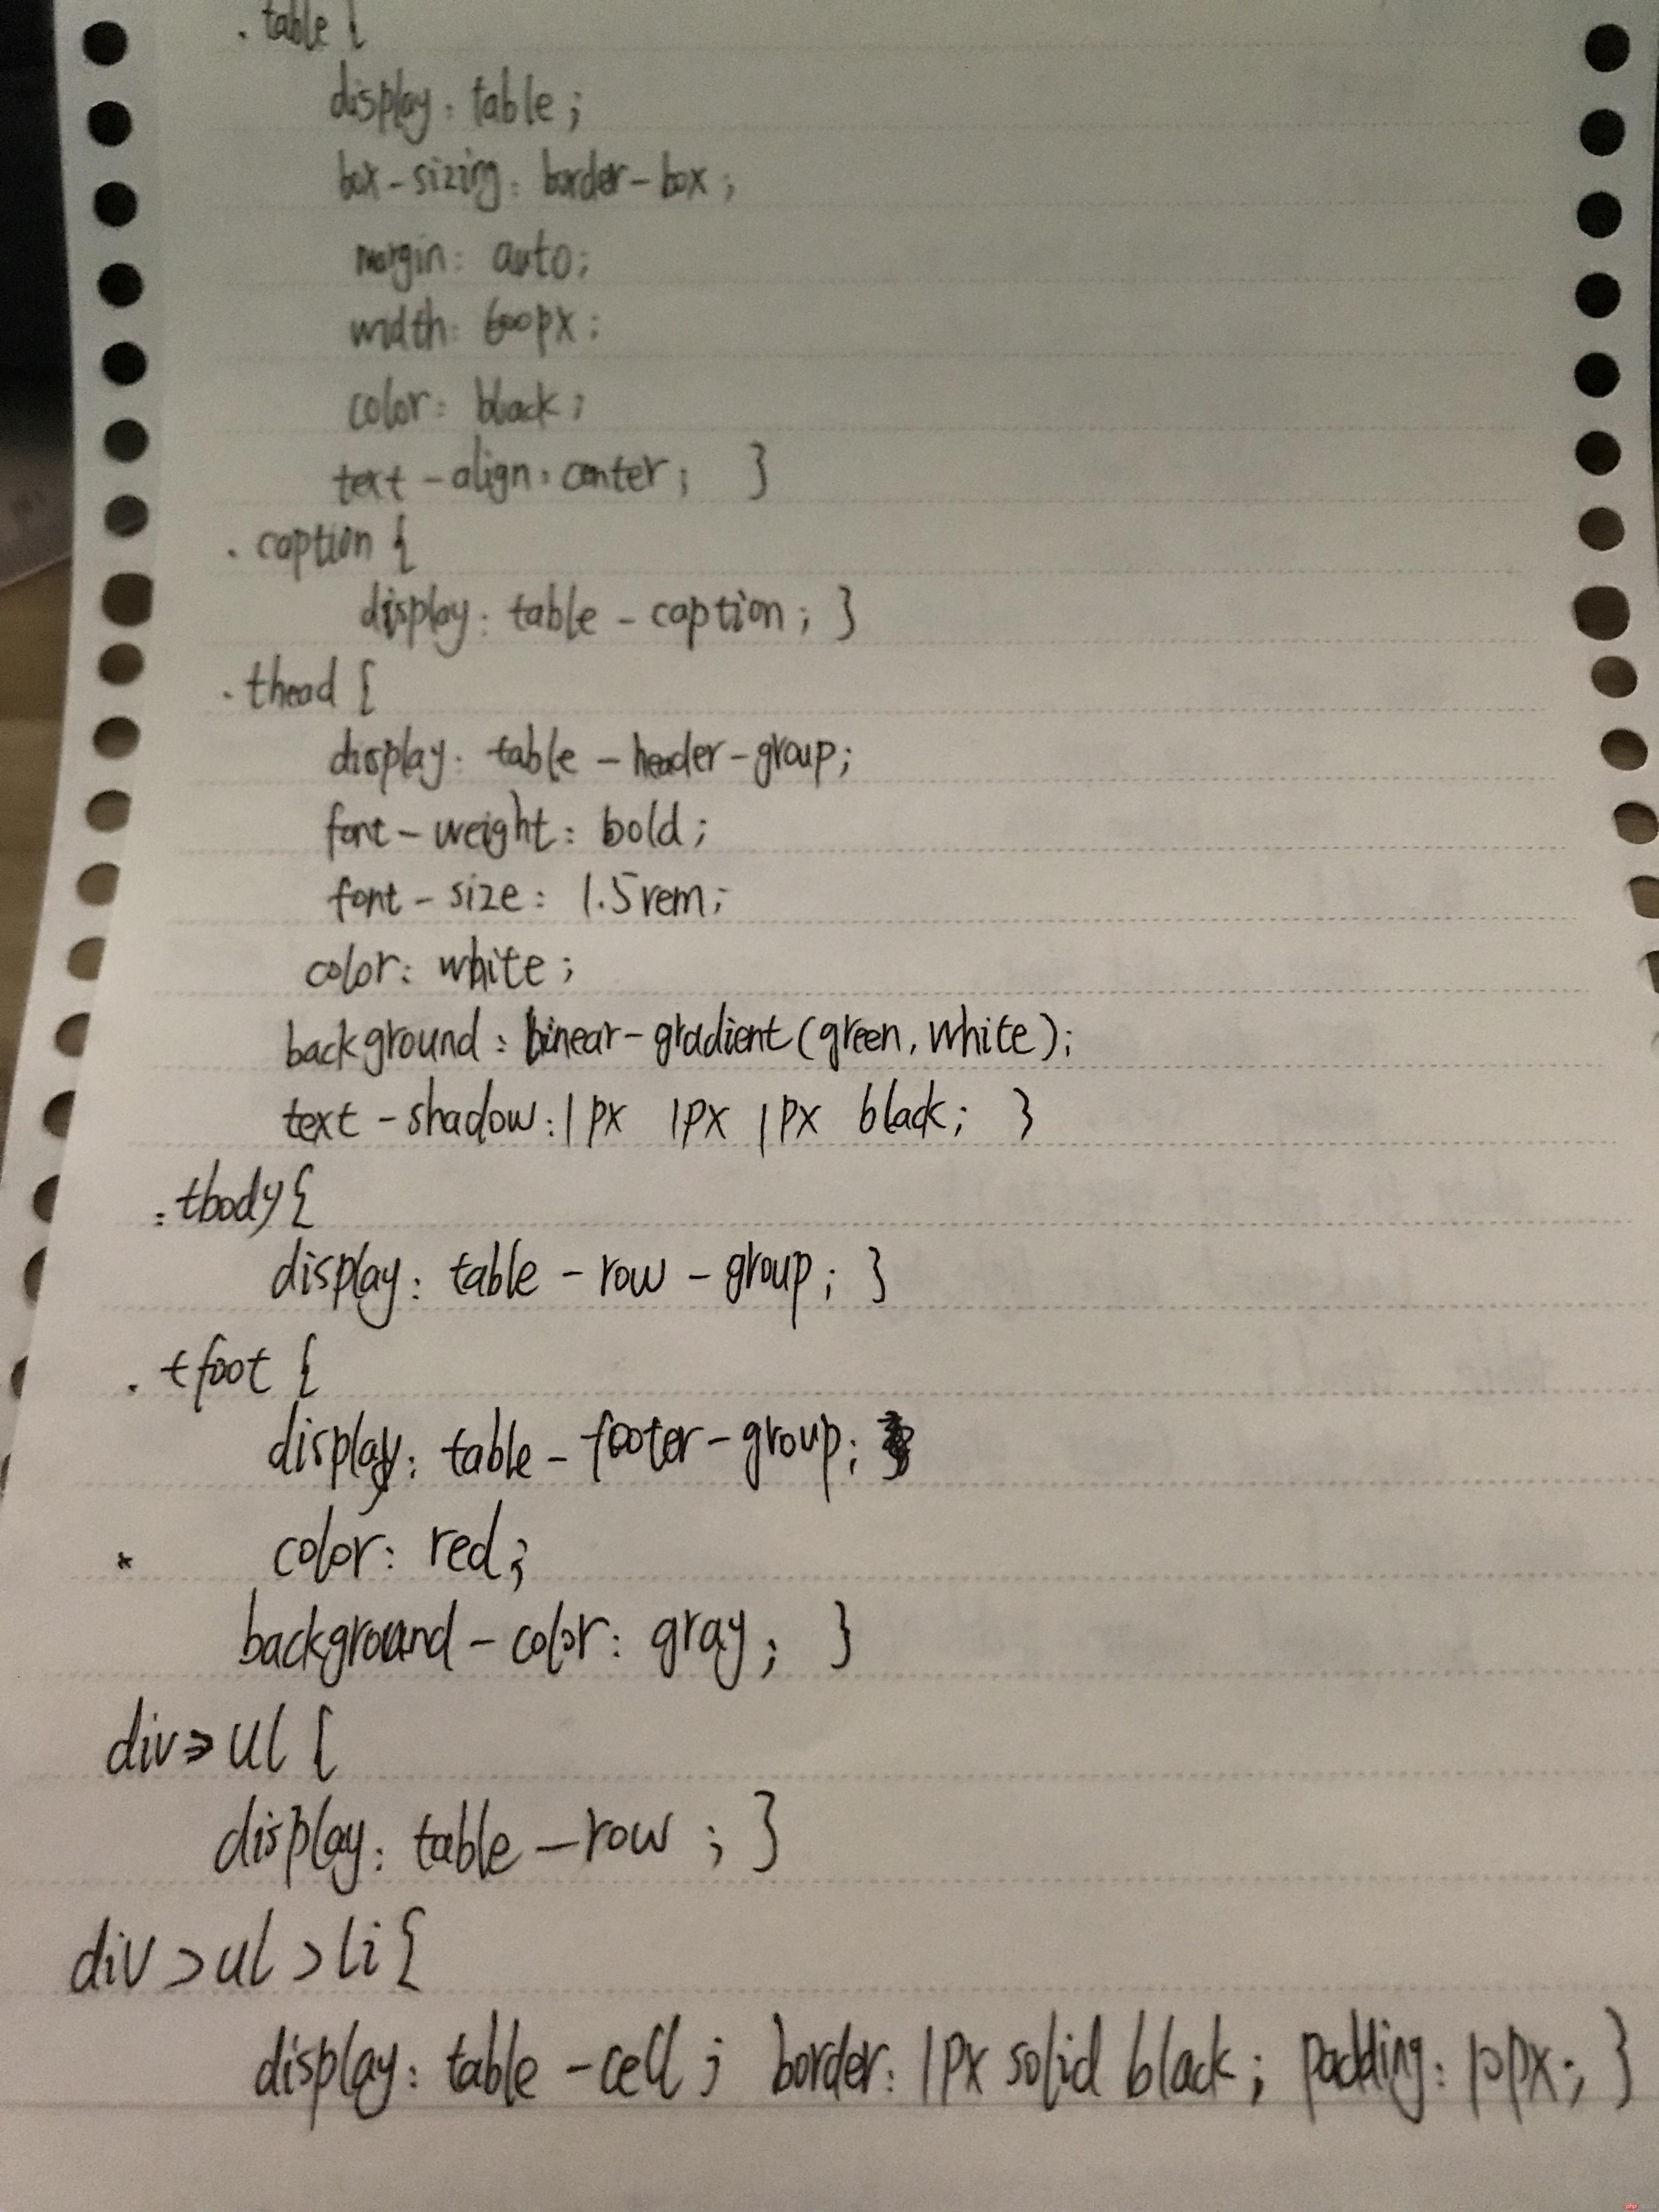 .table {
display: table;
box-sizing: border-box;
margin: auto;
width: 600px;
color: black;
text-align: center; }
.caption {
display: table-caption; }
.thead {
display: table-header-group;
font-weight: bold;
font-size: 1.5rem;
color: white;
background: linear-gradient(green, white);
text-shadow: 1px 1px 1px black; }
.tbody {
display: table-row-group; }
.tfoot {
display: table-footer-group;
color: red;
background-color: gray; }
div>ul {
display: table-row; }
div>ul>li {
display: table-cell; border: 1px solid black; padding: 10px; }